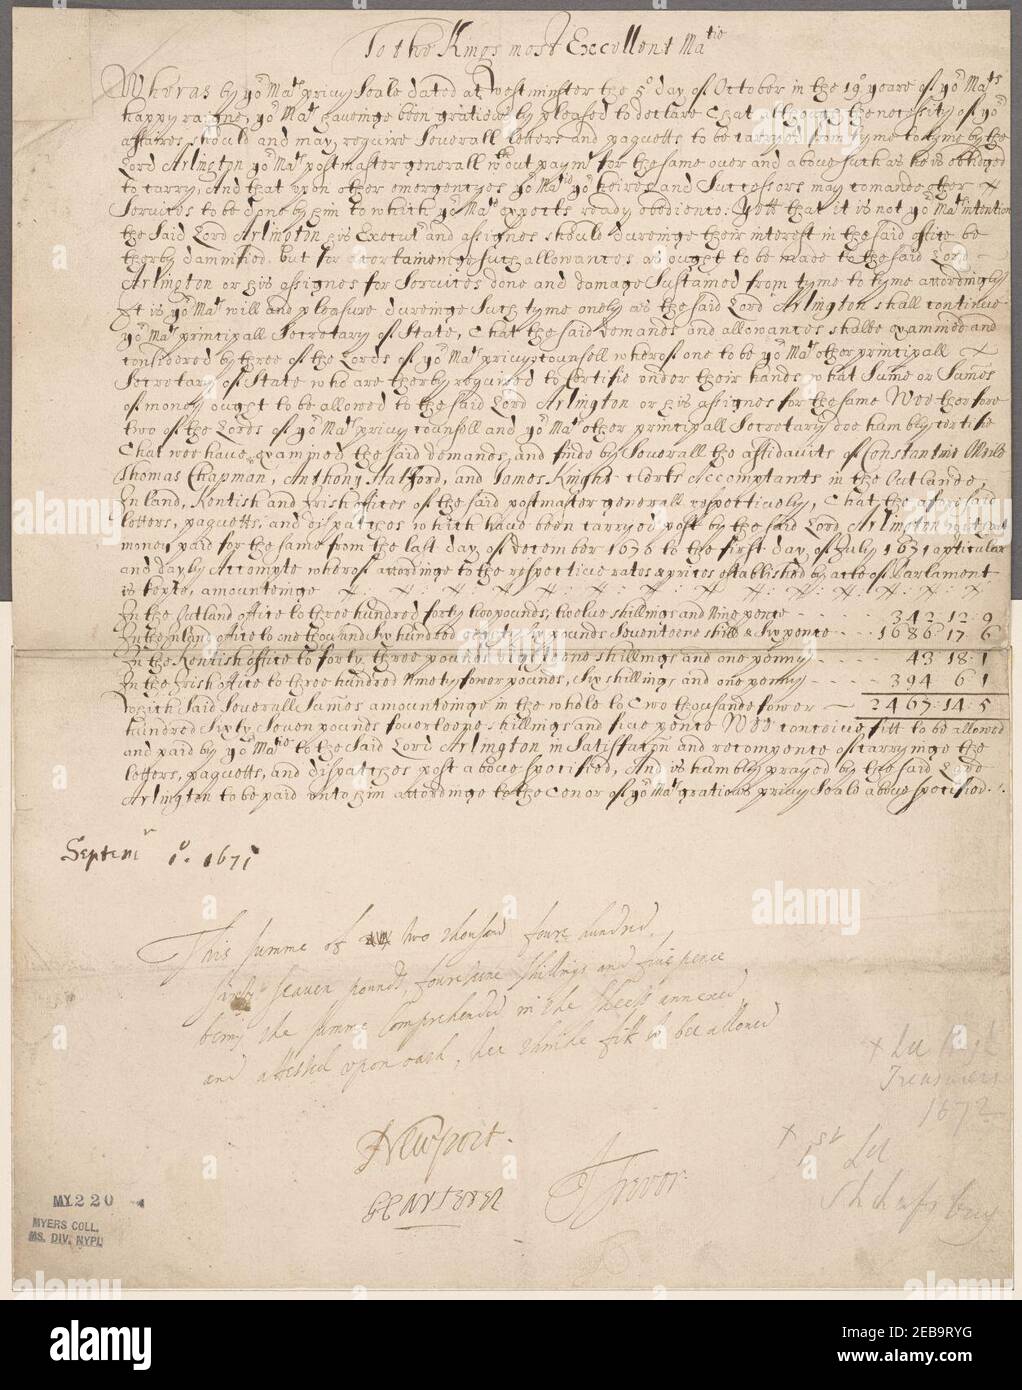 To the Kings most Excellent Ma^tie
Wheras by yo^r Ma^ts privy Seale dated at Westminster the 5^o day of October in the 19^o yeare of yo^r Ma^ts
happy raigne, yo^r Ma^t haveinge been gratiously pleased to declare That although the necessity of yo^r
affaires should and may require Severall Letters and paquetts to be carryed from tyme to tyme by the
Lord Arlington yo^r Ma^ts postmaster generall w^thout paym^t for the same over and above such as he is obliged
to carry, And that upon other emergencyes yo^r Ma^tie yo^r heires and Successors may comande other
Services to be done by him to which yo^r Ma^t expects ready obedience: Yett that it is not yo^r Ma^ts intention
the Said Lord Arlington his Execut^rs and assignes should dureinge their interest in the said office be
therby damnified. but for ascertaineinge such allowances as ought to be made to the Said Lord
Arlington or his assignes for Services done and damage Sustained from tyme to tyme accordingly
It is yo^r Ma^ts will and pleasure dureinge Such tyme onely as the said Lord Arlington shall continue
yo^r Ma^ts principall Secretary of State, That the said demands and allowances shalbe examined and
considered by three of the Lords of yo^r Ma^ts privy counsell wherof one to be yo^r Ma^ts other principall
Secretary of State who are therby required to certifie under their hands what Sume or Sumes
of money ought to be allowed to the said Lord Arlington or his assignes for the same Wee therfore
two of the Lords of yo^r Ma^ts privy counsell and yo^r Ma^ts other principall Secretary doe humbly certifie
That wee have examined the said demands, and finde by Severall the affidavits of Constantine
Thomas Chapman, Anthony and James Knight Clerks Accomptants in the Outlande,
Inland, Kentish and Irish offices of the said postmaster generall respectively, That the aforesaid
letters, paquetts, and dispatches which have been carryed post by the said Lord Arlington
money paid for the same from the last day of december 1670 to the first day of July 1671 a pticular
and dayly Accompte wherof accordinge to the respective rates & prices established by acte of Parlament
is kepte, amounteinge
In the Outland office to three hundred forty two pounds, twelve shillings and Nine pence 342 12 9
In the Inland office to one thousand Six hundred eighty Six pounds Seventeene shill & Six pence 1686 17 6
In the Kentish office to forty three pounds eighteene shillings and one penny 43 18 1
In the Irish office to three hundred Ninety fower pounds, Six shillings and one penny 394 6 1
Which Said Severall Sumes amounteinge in the whole to Two thousande fower 2467: 14: 5
hundred Sixty Seven pounds fowerteene shillings and five pence Wee conceive fitt to be allowed
and paid by yo^r Ma^tie to the Said Lord Arlington in Satisfaction and recompence of carryinge the
letters, paquetts, and dispatches post above specified, And is humbly prayed by the said Lord
Arlington to be paid unto him accordinge to the Tenor of yo^r Ma^ts gratious privy Seale above specified.
Septem^r 1^o. 1671
This summe of two thousand foure hundred,
sixty seaven pounds, fourteene shillings and five pence
being the summe comprehended in the sheets annexed,
and attested upon oath, wee thinke fitt to be allowed
Newport.
J Trevor.
x Ld High
Treasurer
1672
x 1st Ld
Shaftesbury
MY 220
MYERS COLL.
MS. DIV. NYPL
alamy
alamy
Image ID: 2EB9RYG
www.alamy.com